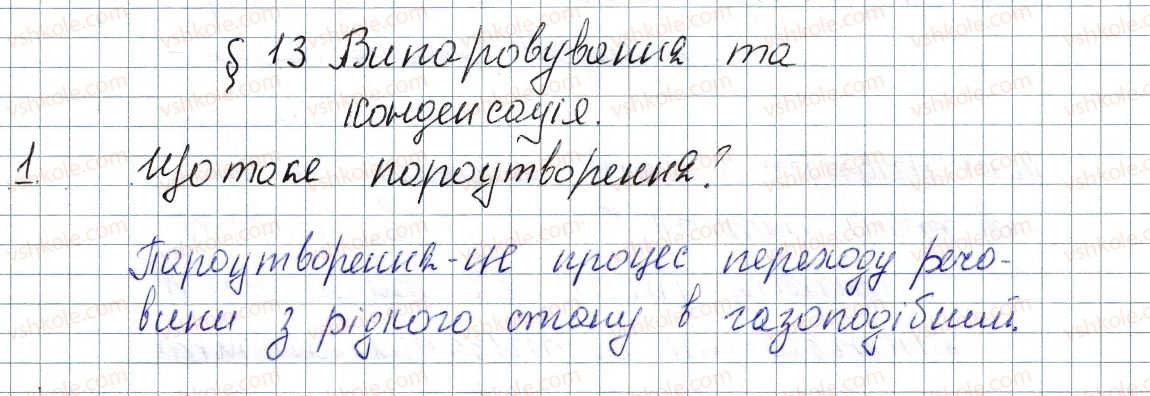 § 13 Випаровування та
конденсація.
1. Що таке пароутворення?
Пароутворення - це процес переходу речо-
вини з рідкого стану в газоподібний.